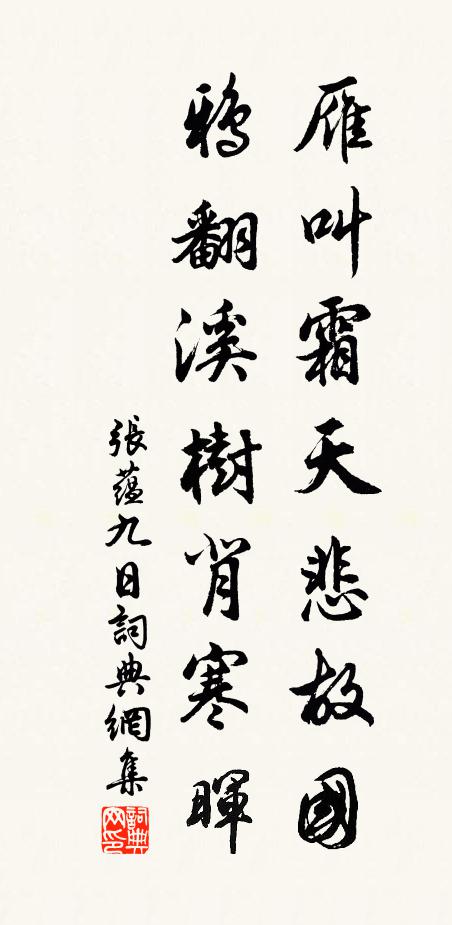 雁叫霜天悲故國
鴉翻溪樹背寒暉
張蘊九日詞典網集
詞典
网印